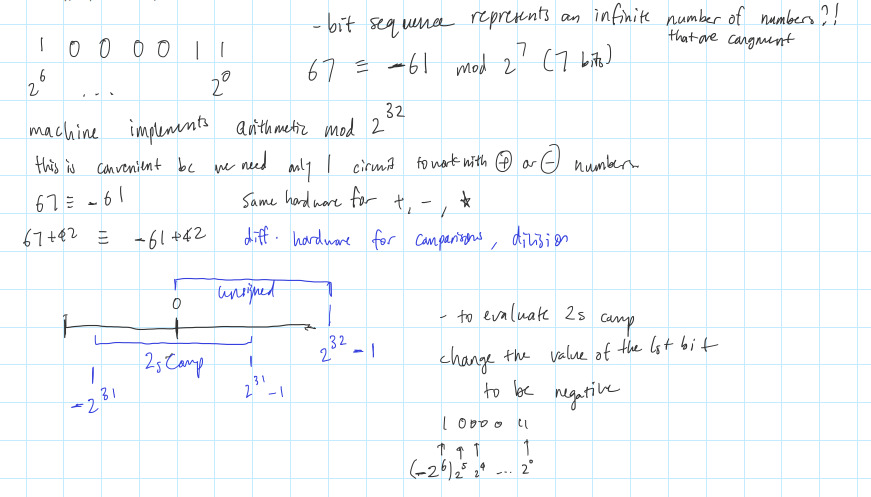 - bit sequence represents an infinite number of numbers?!
that are congruent
1 0 0 0 0 1 1
2^6 ... 2^0
67 ≡ -61 mod 2^7 (7 bits)
machine implements arithmetic mod 2^32
this is convenient bc we need only 1 circuit to work with ⊕ or ⊖ numbers
67 ≡ -61 same hardware for +, -, *
67+42 ≡ -61+42 diff. hardware for comparisons, division
unsigned
0
2^32 - 1
2s Comp
-2^31 2^31 - 1
- to evaluate 2s comp
change the value of the 1st bit
to be negative
1 0000 11
↑ ↑ ↑ ↑
(-2^6) 2^5 2^4 ... 2^0